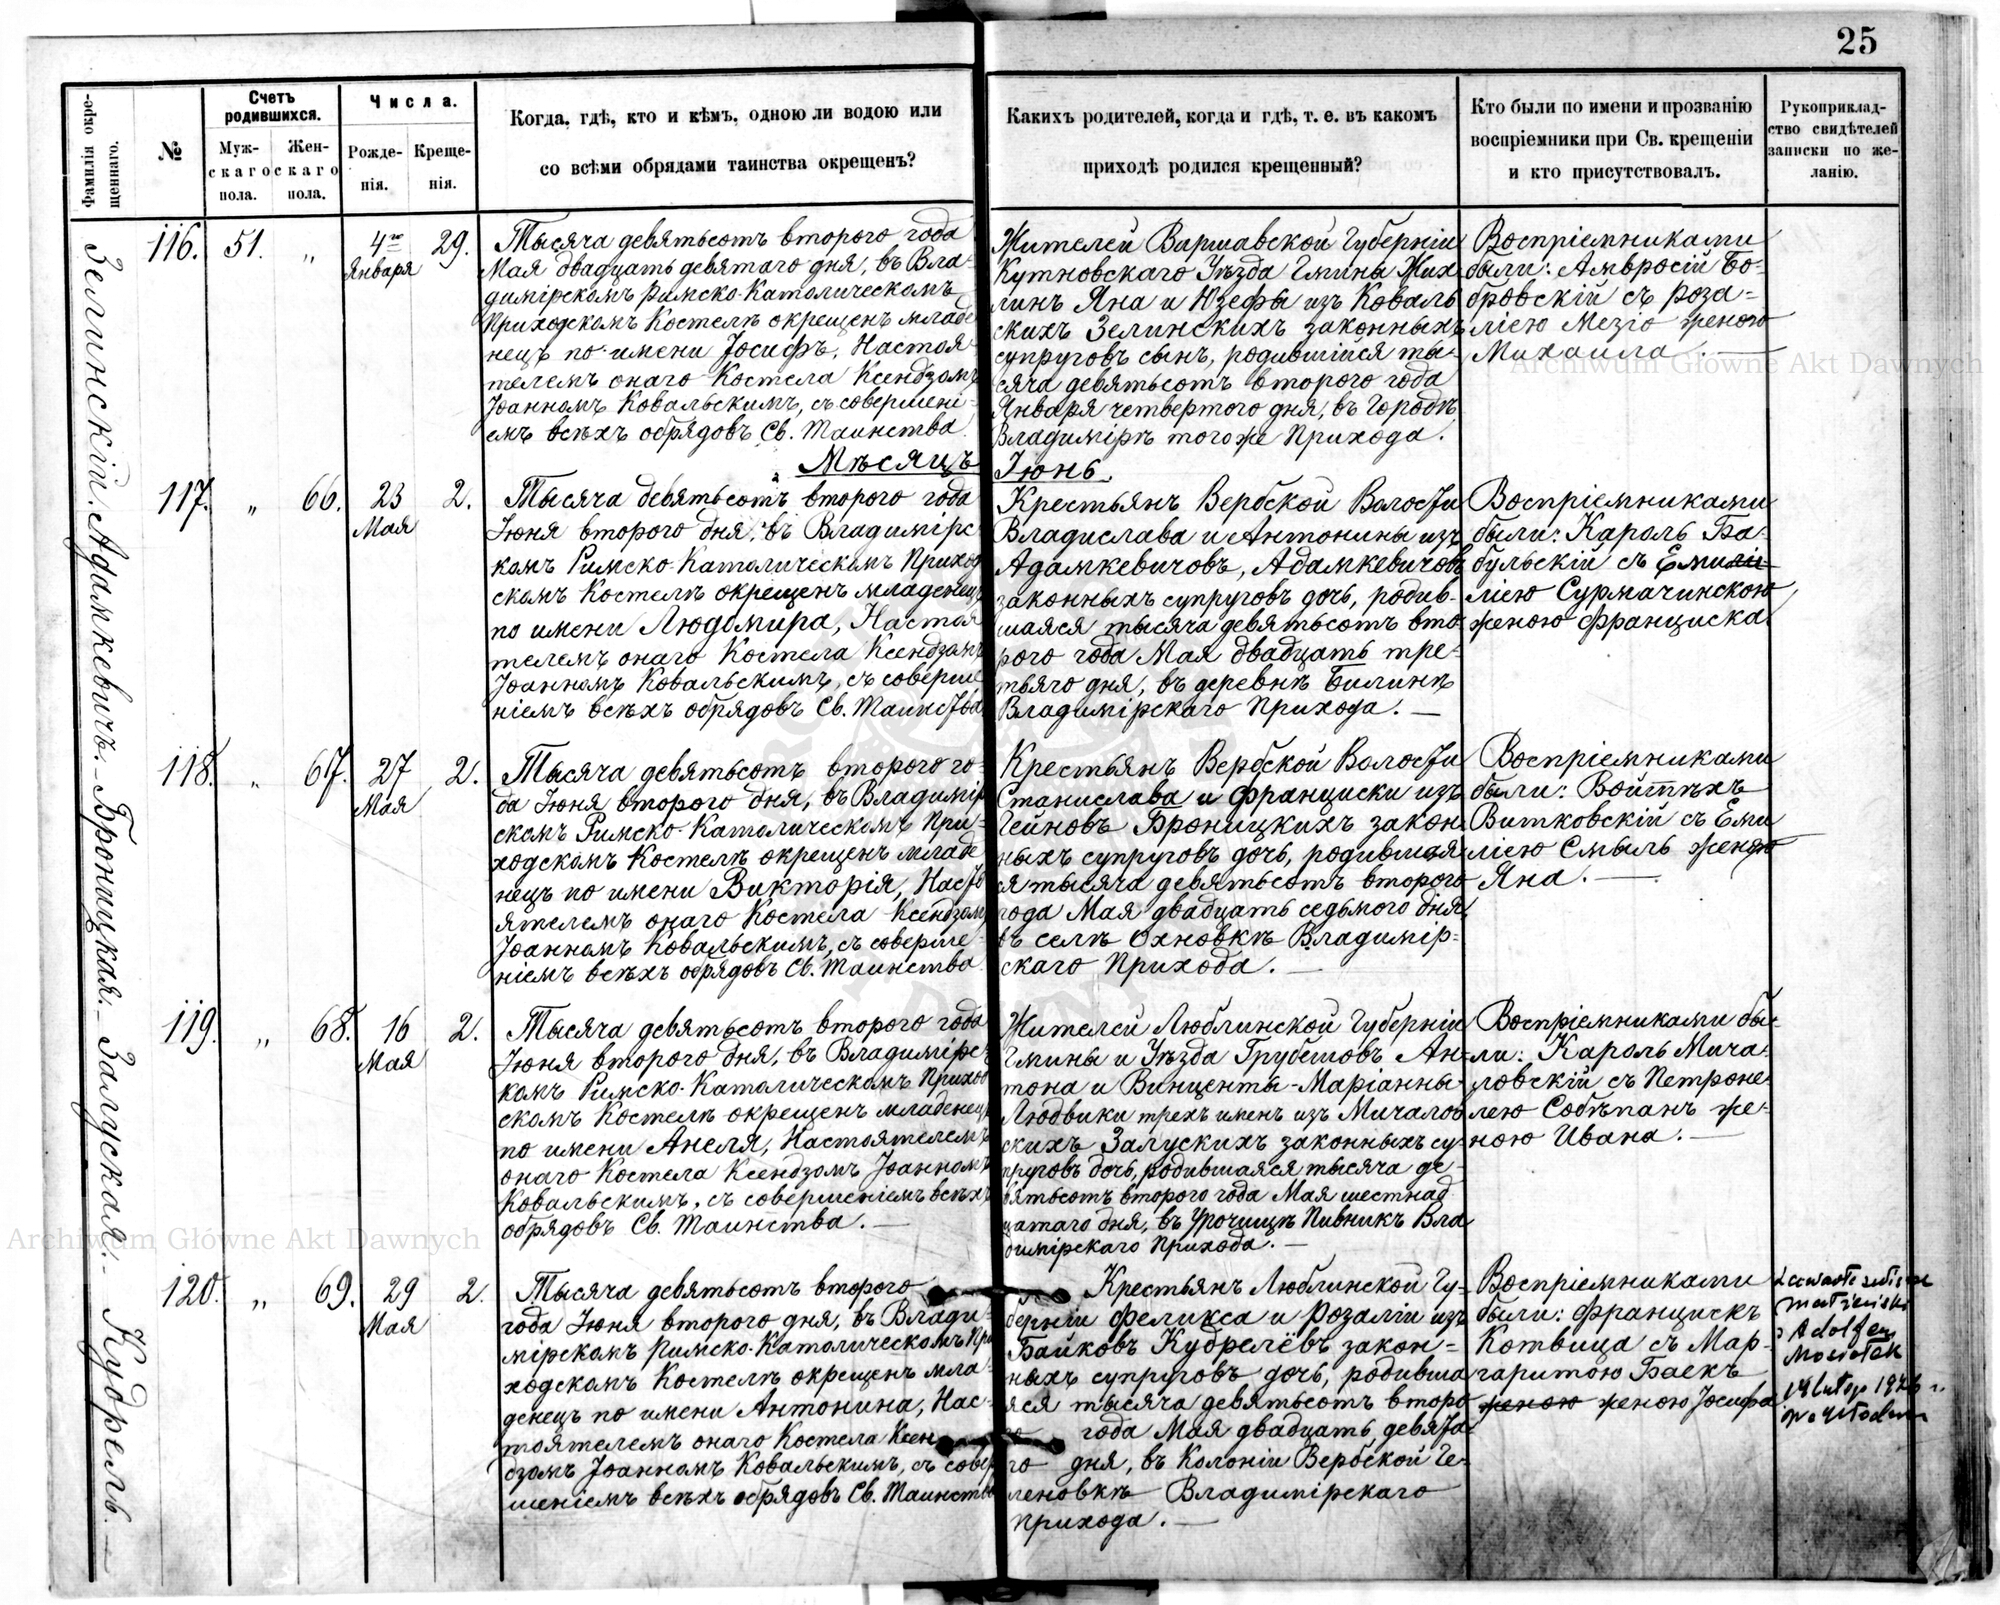 25
Фамилія окре-
щеннаго.
№
Счетъ
родившихся.
Муж-
скаго
пола.
Жен-
скаго
пола.
Числа.
Рожде-
нія.
Креще-
нія.
Когда, гдѣ, кто и кѣмъ, одною ли водою или
со всѣми обрядами таинства окрещенъ?
Какихъ родителей, когда и гдѣ, т. е. въ какомъ
приходѣ родился крещенный?
Кто были по имени и прозванію
воспріемники при Св. крещеніи
и кто присутствовалъ.
Рукоприклад-
ство свидѣтелей
записки по же-
ланію.
Зелинскій. Адамкевичъ. Броницкая. Залуская. Кудрель.
116. 51. „ 4го
Января 29.
Тысяча девятьсотъ второго года
Мая двадцать девятаго дня, въ Вла-
димірскомъ Римско-Католическомъ
Приходскомъ Костелѣ окрещенъ младе
нецъ по имени Іосифъ, Настоя-
телемъ онаго Костела Ксендзомъ
Іоанномъ Ковальскимъ, съ совершені-
емъ всѣхъ обрядовъ Св. Таинства.
Жителей Варшавской Губерніи
Кутновскаго Уѣзда Гмины Жих
линъ Яна и Юзефы изъ Коваль
скихъ Зелинскихъ законныхъ
супруговъ сынъ, родившійся ты-
сяча девятьсотъ второго года
Января четвертого дня, въ Городѣ
Владимірѣ того же Прихода.
Воспріемниками
были: Амвросій Бо-
бровскій съ Роза-
ліею Мезіо женою
Михаила.
Мѣсяцъ Іюнь.
117. „ 66. 23
Мая 2.
Тысяча девятьсотъ второго года
Іюня второго дня, въ Владимірс
комъ Римско-Католическомъ Приход
скомъ Костелѣ окрещенъ младенецъ
по имени Людомира, Настоя
телемъ онаго Костела Ксендзомъ
Іоанномъ Ковальскимъ, съ соверше
ніемъ всѣхъ обрядовъ Св. Таинства
Крестьянъ Вербской Волости
Владислава и Антонины изъ
Адамкевичовъ, Адамкевичовъ
законныхъ супруговъ дочь, родив-
шаяся тысяча девятьсотъ вто-
рого года Мая двадцать тре-
тьяго дня, въ деревнѣ Билинѣ
Владимірскаго Прихода.
Воспріемниками
были: Кароль Ба-
бульскій съ Емилі-
ліею Сурмачинскою
женою Франциска.
118. „ 67. 27
Мая 2.
Тысяча девятьсотъ второго го-
да Іюня второго дня, въ Владимір
скомъ Римско-Католическомъ При-
ходскомъ Костелѣ окрещенъ младе
нецъ по имени Викторія, Насто
ятелемъ онаго Костела Ксендзомъ
Іоанномъ Ковальскимъ, съ соверше-
ніемъ всѣхъ обрядовъ Св. Таинства.
Крестьянъ Вербской Волости
Станислава и Франциски изъ
Гейновъ Броницкихъ закон-
ныхъ супруговъ дочь, родившая
ся тысяча девятьсотъ второго
года Мая двадцать седьмого дня,
въ селѣ Охновкѣ Владимір-
скаго Прихода.
Воспріемниками
были: Войтѣхъ
Витковскій съ Еми
ліею Смыль женою
Яна.
119. „ 68. 16
Мая 2.
Тысяча девятьсотъ второго года
Іюня второго дня, въ Владимірс-
комъ Римско-Католическомъ Приход
скомъ Костелѣ окрещенъ младенецъ
по имени Анеля, Настоятелемъ
онаго Костела Ксендзомъ Іоанномъ
Ковальскимъ, съ совершеніемъ всѣхъ
обрядовъ Св. Таинства.
Жителей Люблинской Губерніи
Гмины и Уѣзда Грубешовъ Ан-
тона и Винценты-Маріанны-
Людвики трехъ именъ изъ Мичалов
скихъ Залускихъ законныхъ су-
пруговъ дочь, родившаяся тысяча де-
вятьсотъ второго года Мая шестнад
цатаго дня, въ Урочищѣ Пивникъ Вла
димірскаго Прихода.
Воспріемниками бы-
ли: Кароль Мича-
ловскій съ Петроне-
лею Собѣпанъ же-
ною Ивана.
120. „ 69. 29
Мая 2.
Тысяча девятьсотъ второго
года Іюня второго дня, въ Влади-
мірскомъ Римско-Католическомъ При
ходскомъ Костелѣ окрещенъ мла-
денецъ по имени Антонина, Нас-
тоятелемъ онаго Костела Ксен
дзомъ Іоанномъ Ковальскимъ, съ совер
шеніемъ всѣхъ обрядовъ Св. Таинства
Крестьянъ Люблинской Гу-
берніи Феликса и Розаліи изъ
Байковъ Кудрелёвъ закон-
ныхъ супруговъ дочь, родивша
яся тысяча девятьсотъ второ
го года Мая двадцать девята
го дня, въ Колоніи Вербской Ге-
леновкѣ Владимірскаго
Прихода.
Воспріемниками
были: Францискъ
Котвица съ Мар-
гаритою Баекъ
женою женою Іосифа
małżeński
z Adolfem
1926 r.
Archiwum Główne Akt Dawnych
Archiwum Główne Akt Dawnych